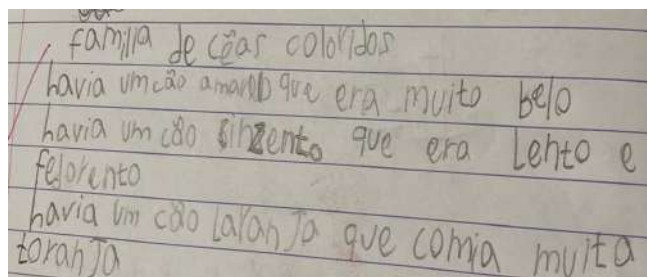 familia de cẽas coloridos
havia um cão amarelo que era muito belo
havia um cão sinzento que era Lento e
fejorento
havia um cão Laranja que comia muita
toranja